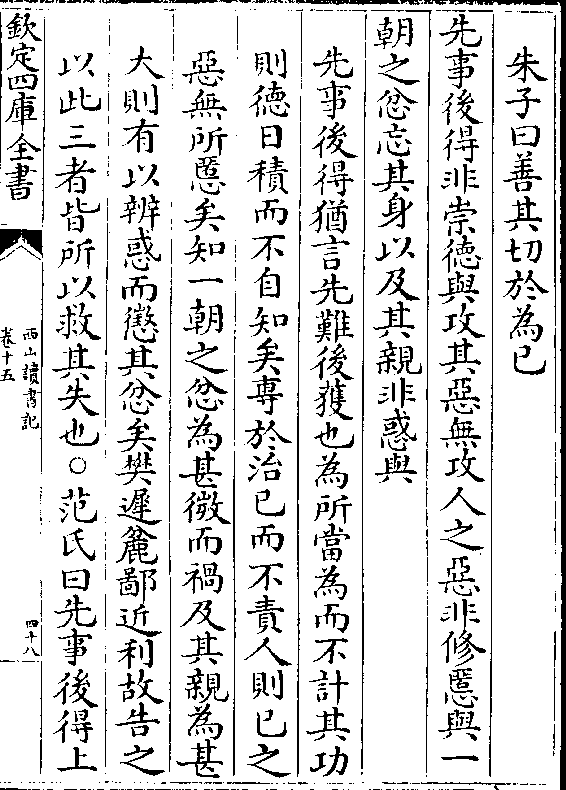 朱子曰善其切於為己
先事後得非崇德與攻其惡無攻人之惡非修慝與一
朝之忿忘其身以及其親非惑與
先事後得猶言先難後獲也為所當為而不計其功
則德日積而不自知矣専於治己而不責人則已之
惡無所慝矣知一朝之忿為甚微而禍及其親為甚
大則有以辨惑而懲其忿矣樊遲麄鄙近利故告之
以此三者皆所以救其失也○范氏曰先事後得上
欽定四庫全書
西山讀書記
卷十五
四十八